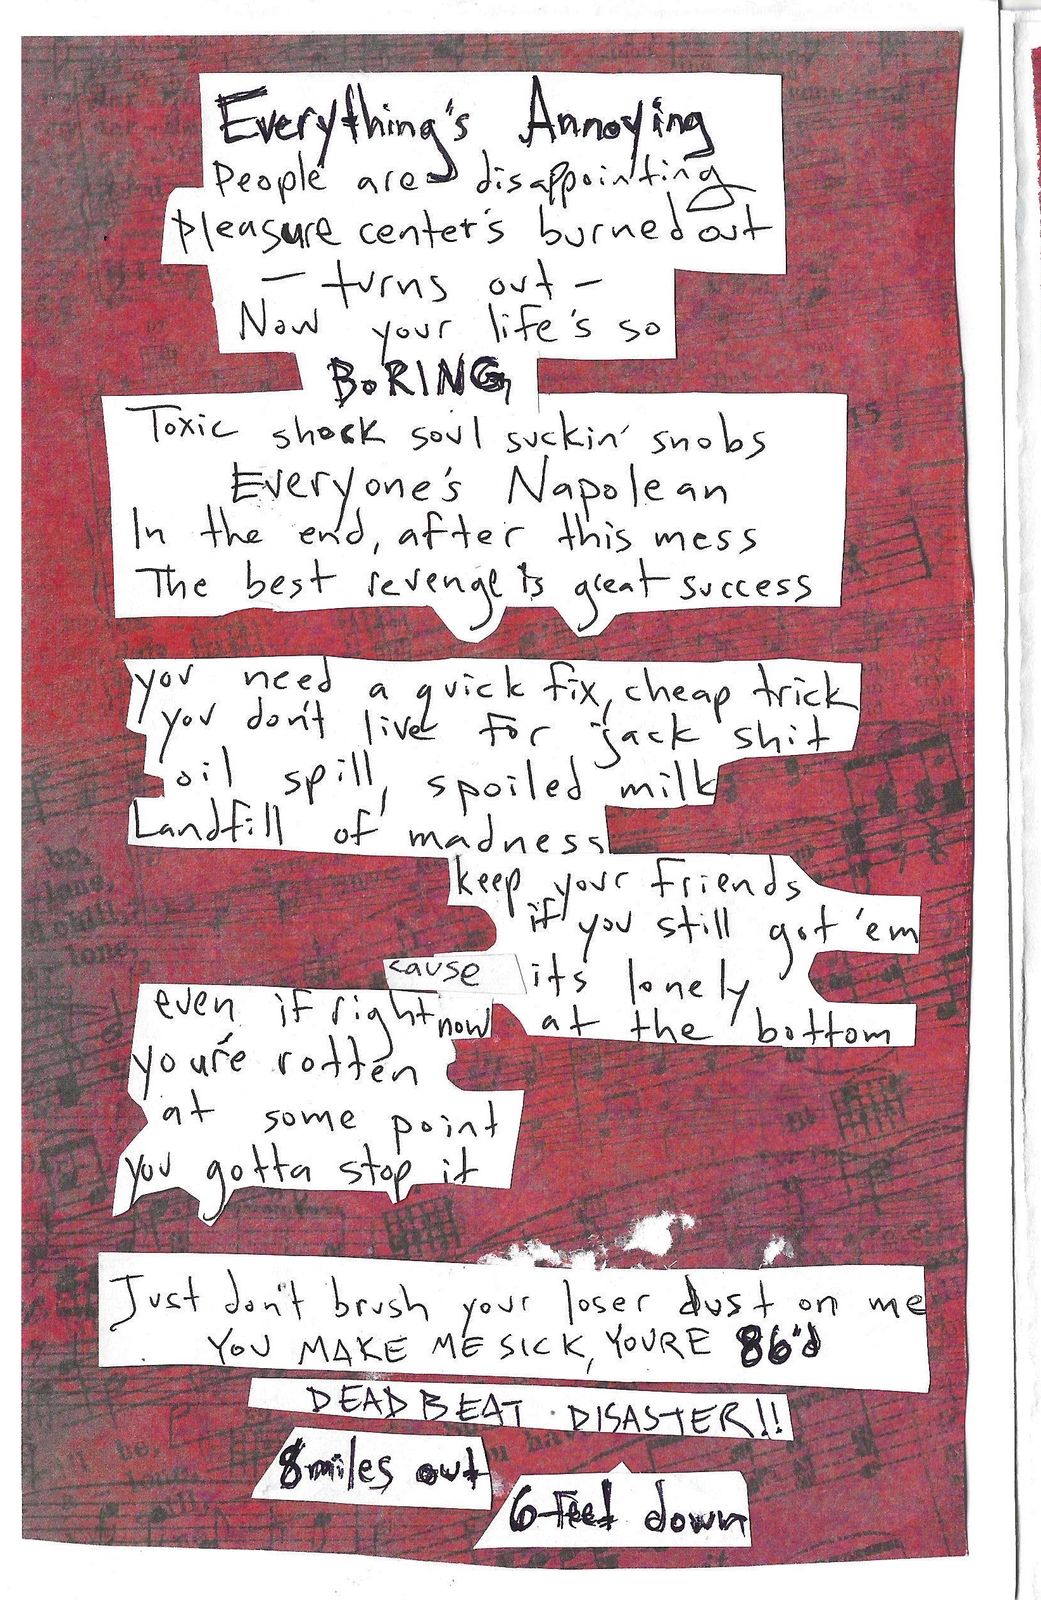 Everything's Annoying
People are disappointing
pleasure center's burned out
— turns out —
Now your life's so
BORING
Toxic shock soul suckin' snobs
Everyone's Napolean
In the end, after this mess
The best revenge is great success
you need a quick fix, cheap trick
you don't live for jack shit
oil spill, spoiled milk
Landfill of madness
keep your friends
if you still got 'em
cause its lonely
at the bottom
even if right now
you're rotten
at some point
you gotta stop it
Just don't brush your loser dust on me
YOU MAKE ME SICK, YOURE 86'd
DEADBEAT DISASTER!!
8 miles out
6 feet down
15
be,
lone,